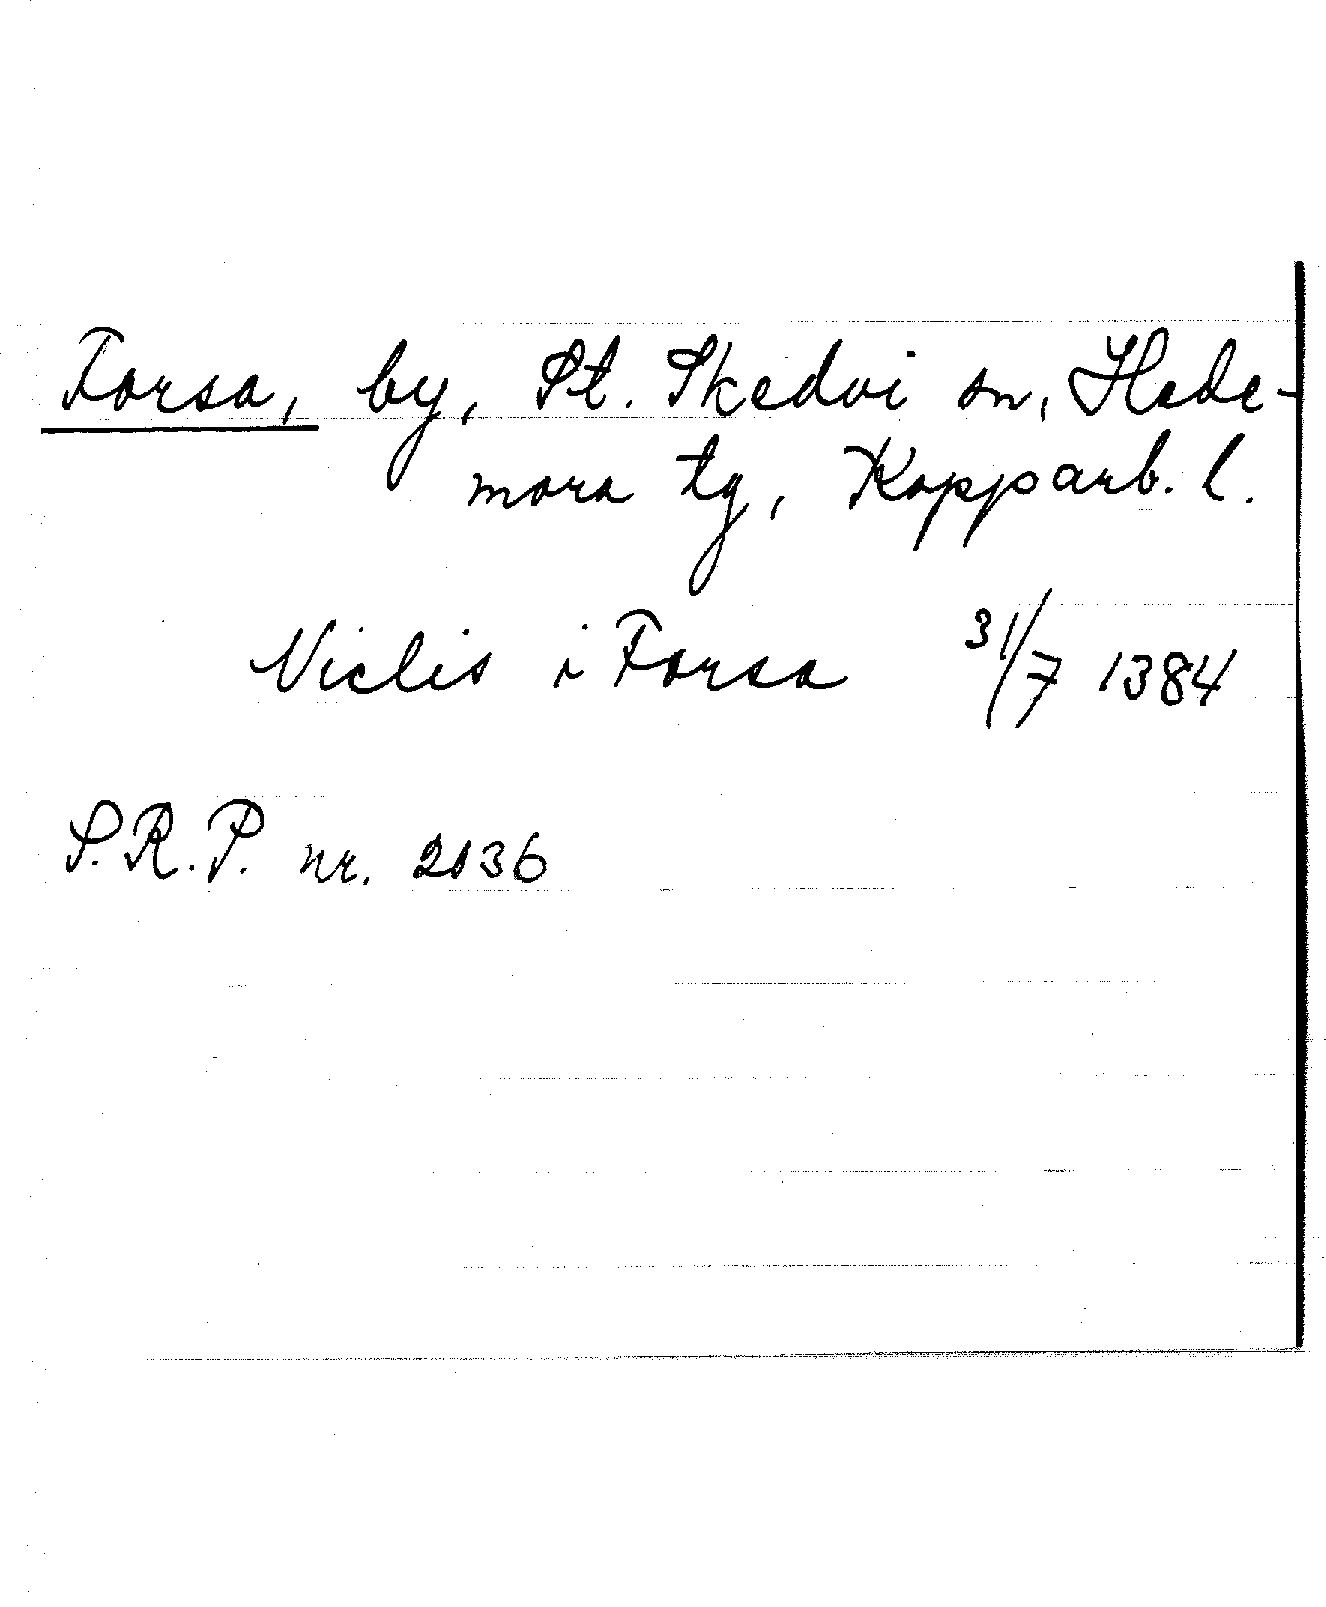 Forsa, by, St. Skedvi sn, Hede-
mora tg, Kopparb. l.
Niclis i Forsa 31/7 1384
S.R.P. nr. 2036